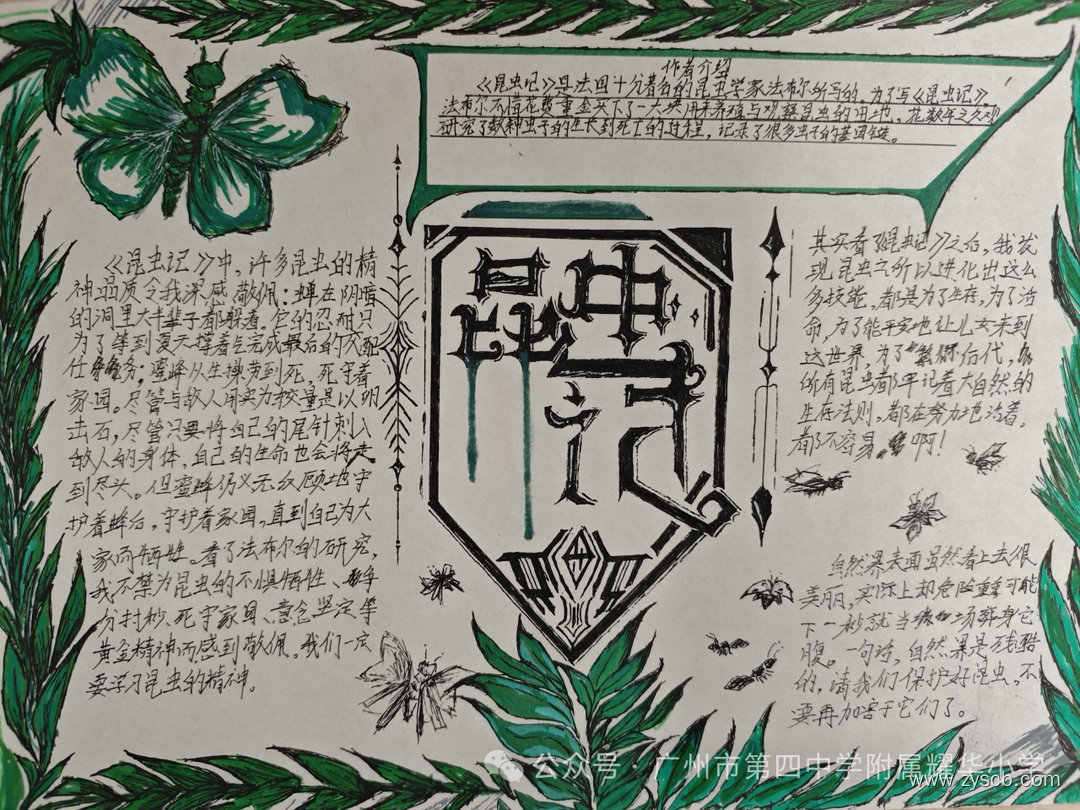 作者介绍
《昆虫记》是法国十分著名的昆虫学家法布尔所写的,为了写《昆虫记》,
法布尔不惜花费重金买下了一大块用来养殖与观察昆虫的田地。花数年之久观
研究了数种虫子的生长到死亡的过程,记录了很多虫子的基因链。
昆虫
记
《昆虫记》中,许多昆虫的精
神品质令我深感敬佩:蝉在阴暗
的洞里大半辈子都躲着。它的忍耐只
为了等到夏天撑着气完成最后的交配
任务。蜜蜂从生操劳到死,死守着
家园。尽管与敌人用实力较量是以卵
击石,尽管只要将自己的尾针刺入
敌人的身体,自己的生命也会将走
到尽头。但蜜蜂仍义无反顾地守
护着蜂后,守护着家园,直到自己为大
家而牺牲。看了法布尔的研究,
我不禁为昆虫的不惧牺牲、争
分封秒、死守家园、意念坚定等
黄金精神而感到敬佩。我们一定
要学习昆虫的精神。
其实看了《昆虫记》之后,我发
现昆虫之所以进化出这么
多技能,都是为了生存,为了活
命,为了能平安地让儿女来到
这世界,为了繁衍后代,
所有昆虫都牢记着大自然的
生存法则,都在努力地活着,
都不容易啊!
自然界表面虽然看上去很
美丽,实际上却危险重重可能
下一秒就当场葬身它
腹。一句话,自然界是残酷
的,请我们保护好昆虫,不
要再加害于它们了。
公众号·广州市第四中学附属耀华小学
www.zyscb.com